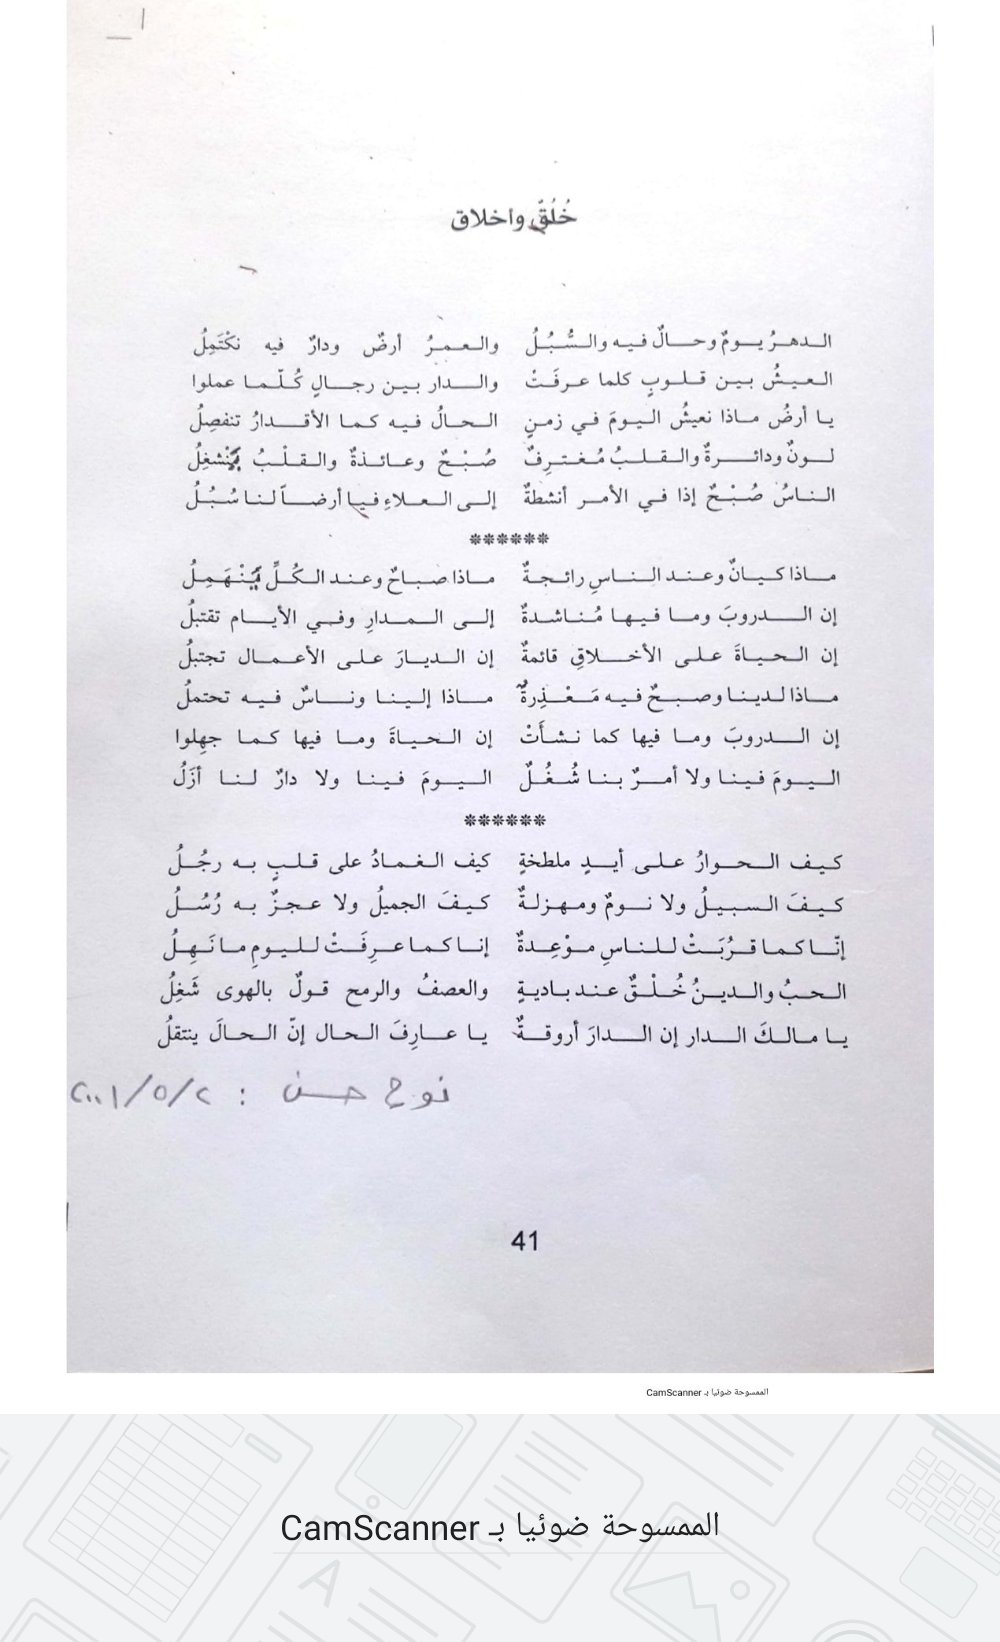 خُلُقٌ وأخلاق
الدهرُ يومٌ وحالٌ فيه والسُّبُلُ والعمرُ أرضٌ ودارٌ فيه نكْتَمِلُ
العيشُ بين قلوبٍ كلما عرفَتْ والدار بين رجالٍ كُلّما عملوا
يا أرضُ ماذا نعيشُ اليومَ في زمنٍ الحالُ فيه كما الأقدارُ تنفصِلُ
لونٌ ودائرةٌ والقلبُ مُغترِفٌ صُبْحٌ وعائذةٌ والقلْبُ ينْشغِلُ
الناسُ صُبْحٌ إذا في الأمر أنشطةٌ إلى العلاءِ فيا أرضاً لنا سُبُلُ
******
ماذا كيانٌ وعند الناسِ رائجةٌ ماذا صباحٌ وعند الكُلِّ يَنْهَمِلُ
إن الدروبَ وما فيها مُناشدةٌ إلى المدارِ وفي الأيام تقتبلُ
إن الحياةَ على الأخلاقِ قائمةٌ إن الديارَ على الأعمال تجتبلُ
ماذا لدينا وصبحٌ فيه مَعْذِرةٌ ماذا إلينا وناسٌ فيه تحتملُ
إن الدروبَ وما فيها كما نشأَتْ إن الحياةَ وما فيها كما جهِلوا
اليومَ فينا ولا أمرٌ بنا شُغُلٌ اليومَ فينا ولا دارٌ لنا أزَلُ
******
كيف الحوارُ على أيدٍ ملطخةٍ كيف الغمادُ على قلبٍ به رجُلُ
كيفَ السبيلُ ولا نومٌ ومهزلةٌ كيفَ الجميلُ ولا عجزٌ به رُسُلُ
إنّا كما قرُبَتْ للناسِ موْعِدةٌ إنا كما عرِفَتْ لليومِ ما نَهِلُ
الحبُ والدينُ خُلْقٌ عند باديةٍ والعصفُ والرمح قولٌ بالهوى شَغِلُ
يا مالكَ الدار إن الدارَ أروقةٌ يا عارِفَ الحال إنّ الحالَ ينتقلُ
نوح حسن : ٢٠٠١/٥/٢
41
الممسوحة ضوئيا بـ CamScanner
الممسوحة ضوئيا بـ CamScanner